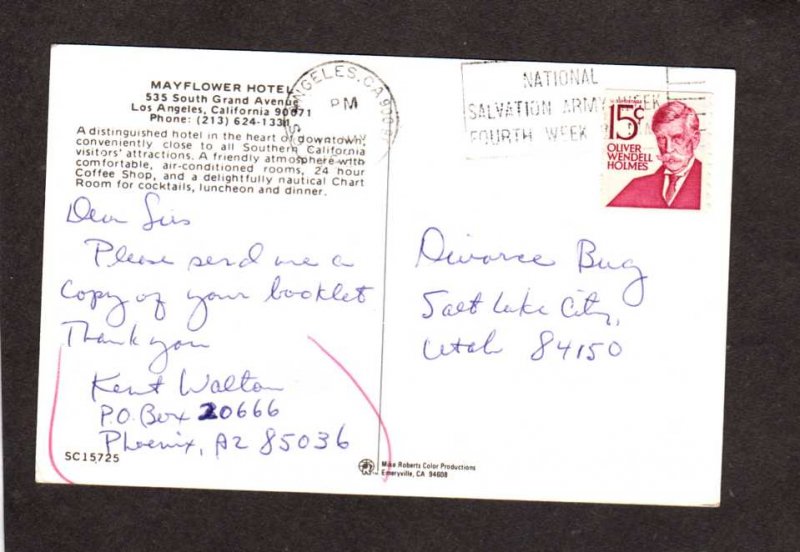 MAYFLOWER HOTEL
535 South Grand Avenue
Los Angeles, California 90071
Phone: (213) 624-1331
A distinguished hotel in the heart of downtown,
conveniently close to all Southern California
visitors' attractions. A friendly atmosphere with
comfortable, air-conditioned rooms, 24 hour
Coffee Shop, and a delightfully nautical Chart
Room for cocktails, luncheon and dinner.
Dear Sirs
Please send me a
copy of your booklet
Thank you
Kent Walton
P.O. Box 20666
Phoenix, AZ 85036
SC15725
Mike Roberts Color Productions
Emeryville, CA 94608
ANGELES, CA
PM
NATIONAL
SALVATION ARMY WEEK
FOURTH WEEK
15c
OLIVER
WENDELL
HOLMES
Divorce Bug
Salt Lake City,
Utah 84150